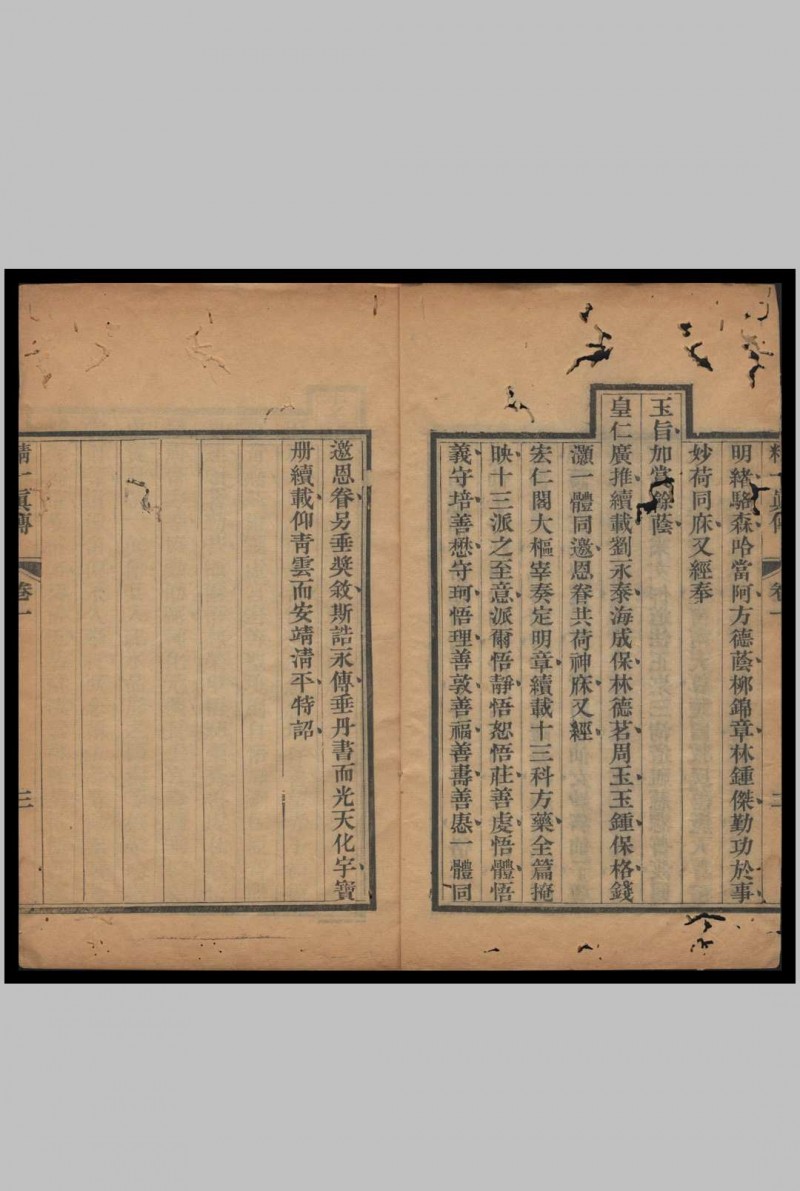 明緒駱森哈當阿方德蔭柳錦章林鍾傑勤功於事
妙荷同庥又經奉
玉旨加賞餘蔭
皇仁廣推續載劉永泰海成保林德茗周玉玉鍾保格錢
灝一體同邀恩眷共荷神庥又經
宏仁閣大樞宰奏定明章續載十三科方藥全篇掩
映十三派之至意派爾悟靜悟恕悟莊善處悟體悟
義守培善懋守珂悟理善敦善福善壽善悳一體同
邀恩眷另垂獎敘斯誥永傳垂丹書而光天化宇寶
册續載仰青雲而安靖淸平特詔
精一眞傳
卷一
三